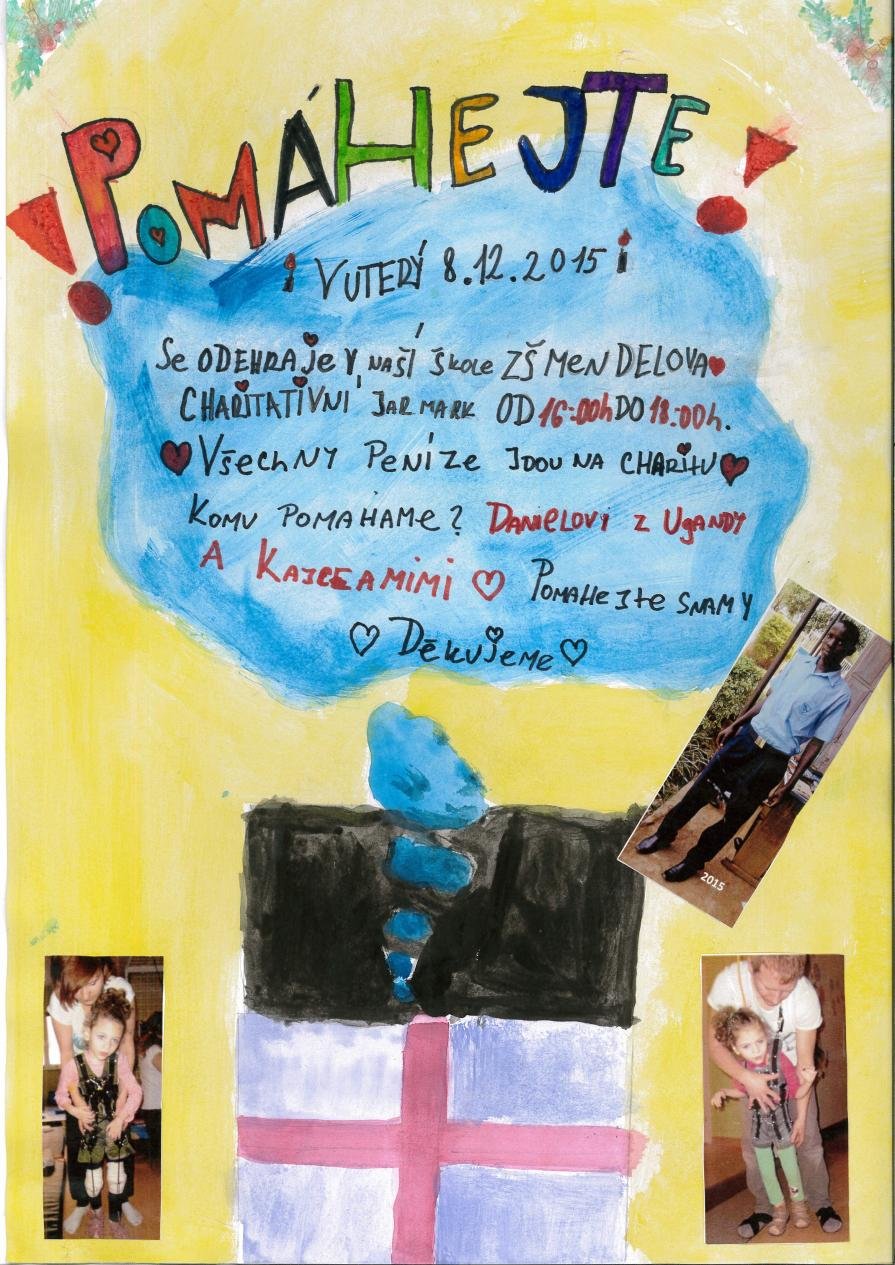 POMÁHEJTE
V ÚTERÝ 8.12.2015
Se ODEHRAJe V NAŠÍ Škole ZŠ MENDELOVA
CHARITATIVNÍ JARMARK OD 16:00h DO 18:00h.
VšechNY PeNíze JDOU NA CHARITU
KOMU POMAHAME? DANIELOVI Z UgANDY
A KAJCE A MIMI POMAHeJte SNAMY
DěkuJeMe
2015